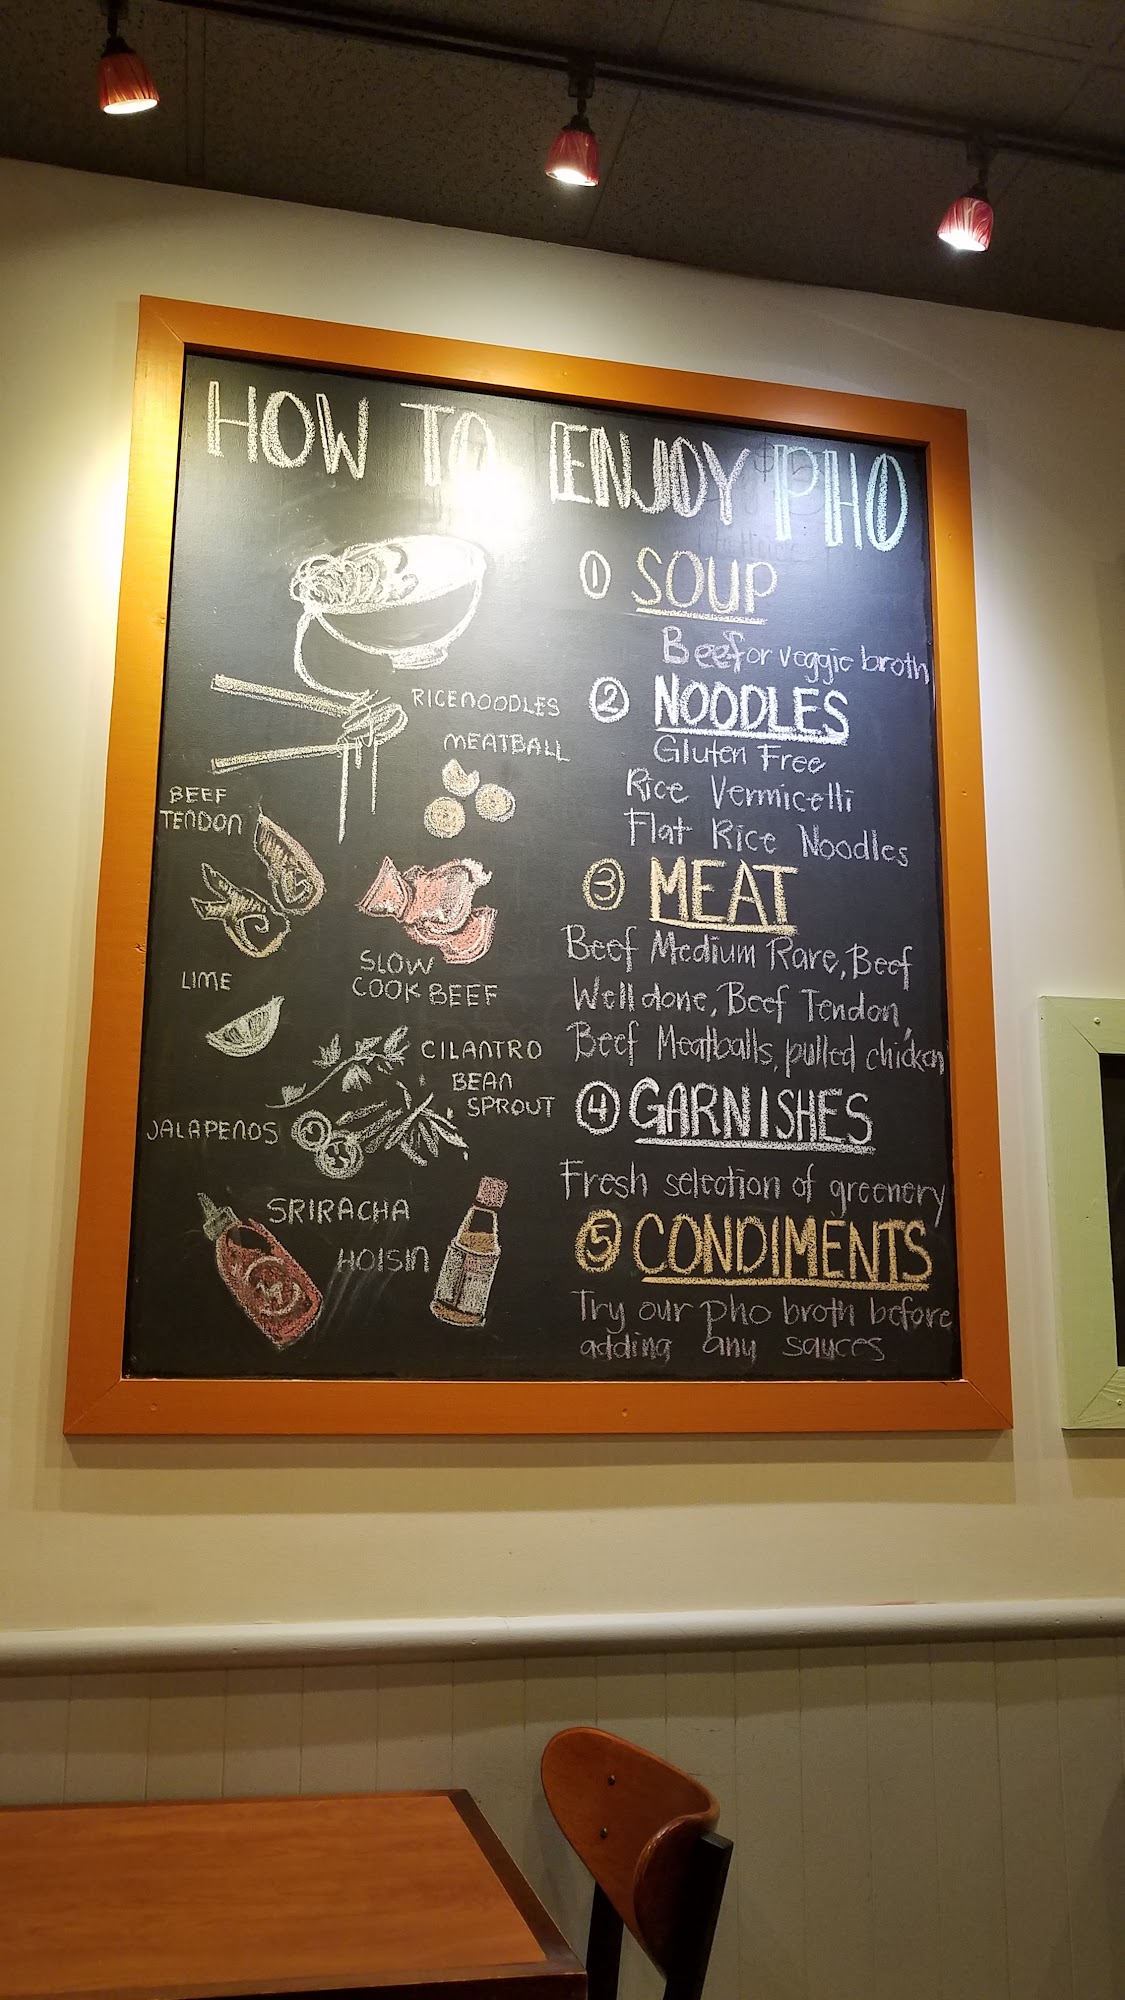 HOW TO ENJOY PHO
① SOUP
Beef or veggie broth
② NOODLES
Gluten Free
Rice Vermicelli
Flat Rice Noodles
③ MEAT
Beef Medium Rare, Beef
Well done, Beef Tendon,
Beef Meatballs, pulled chicken
④ GARNISHES
Fresh selection of greenery
⑤ CONDIMENTS
Try our pho broth before
adding any sauces
RICE NOODLES
MEATBALL
BEEF
TENDON
SLOW
COOK BEEF
LIME
CILANTRO
BEAN
SPROUT
JALAPENOS
SRIRACHA
HOISIN